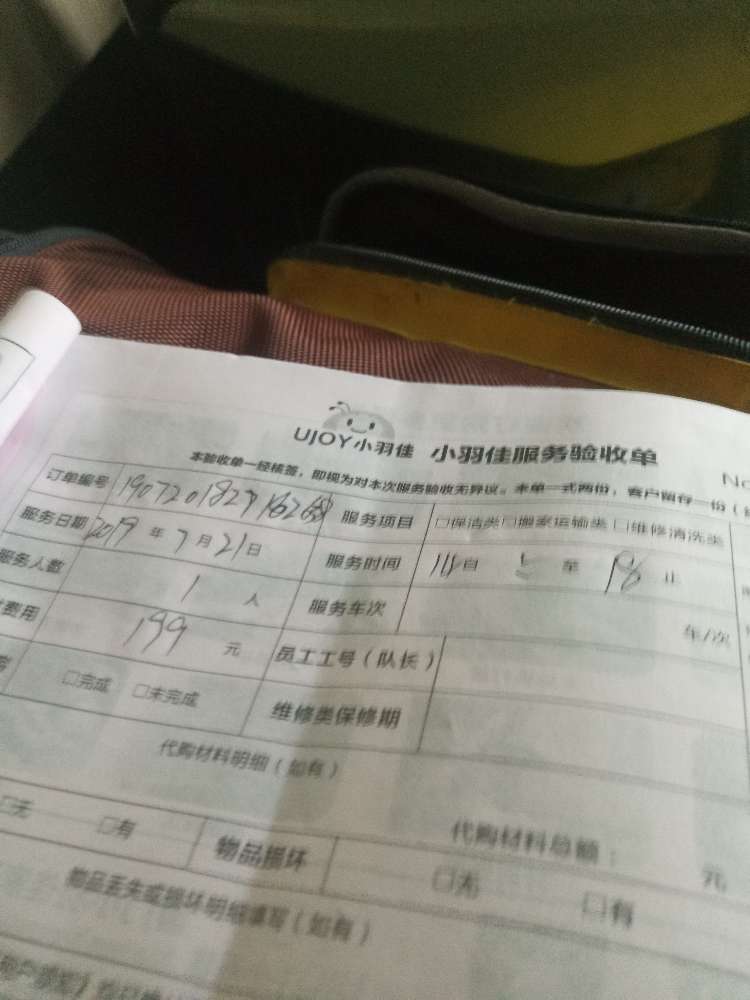 UJOY小羽佳 小羽佳服务验收单
No
本验收单一经核签,即视为对本次服务验收无异议。本单一式两份,客户留存一份(
订单编号 服务项目 □保洁类□搬家运输类 □维修清洗类
服务日期 2019 年 7 月 21 日 服务时间 自 至 18 止
服务人数 1 人 服务车次 车/次
费用 199 元 员工工号(队长)
□完成 □未完成 维修类保修期
代购材料明细(如有)
代购材料总额: 元
□无 □有 物品损坏 □无 □有
物品丢失或损坏明细填写(如有)